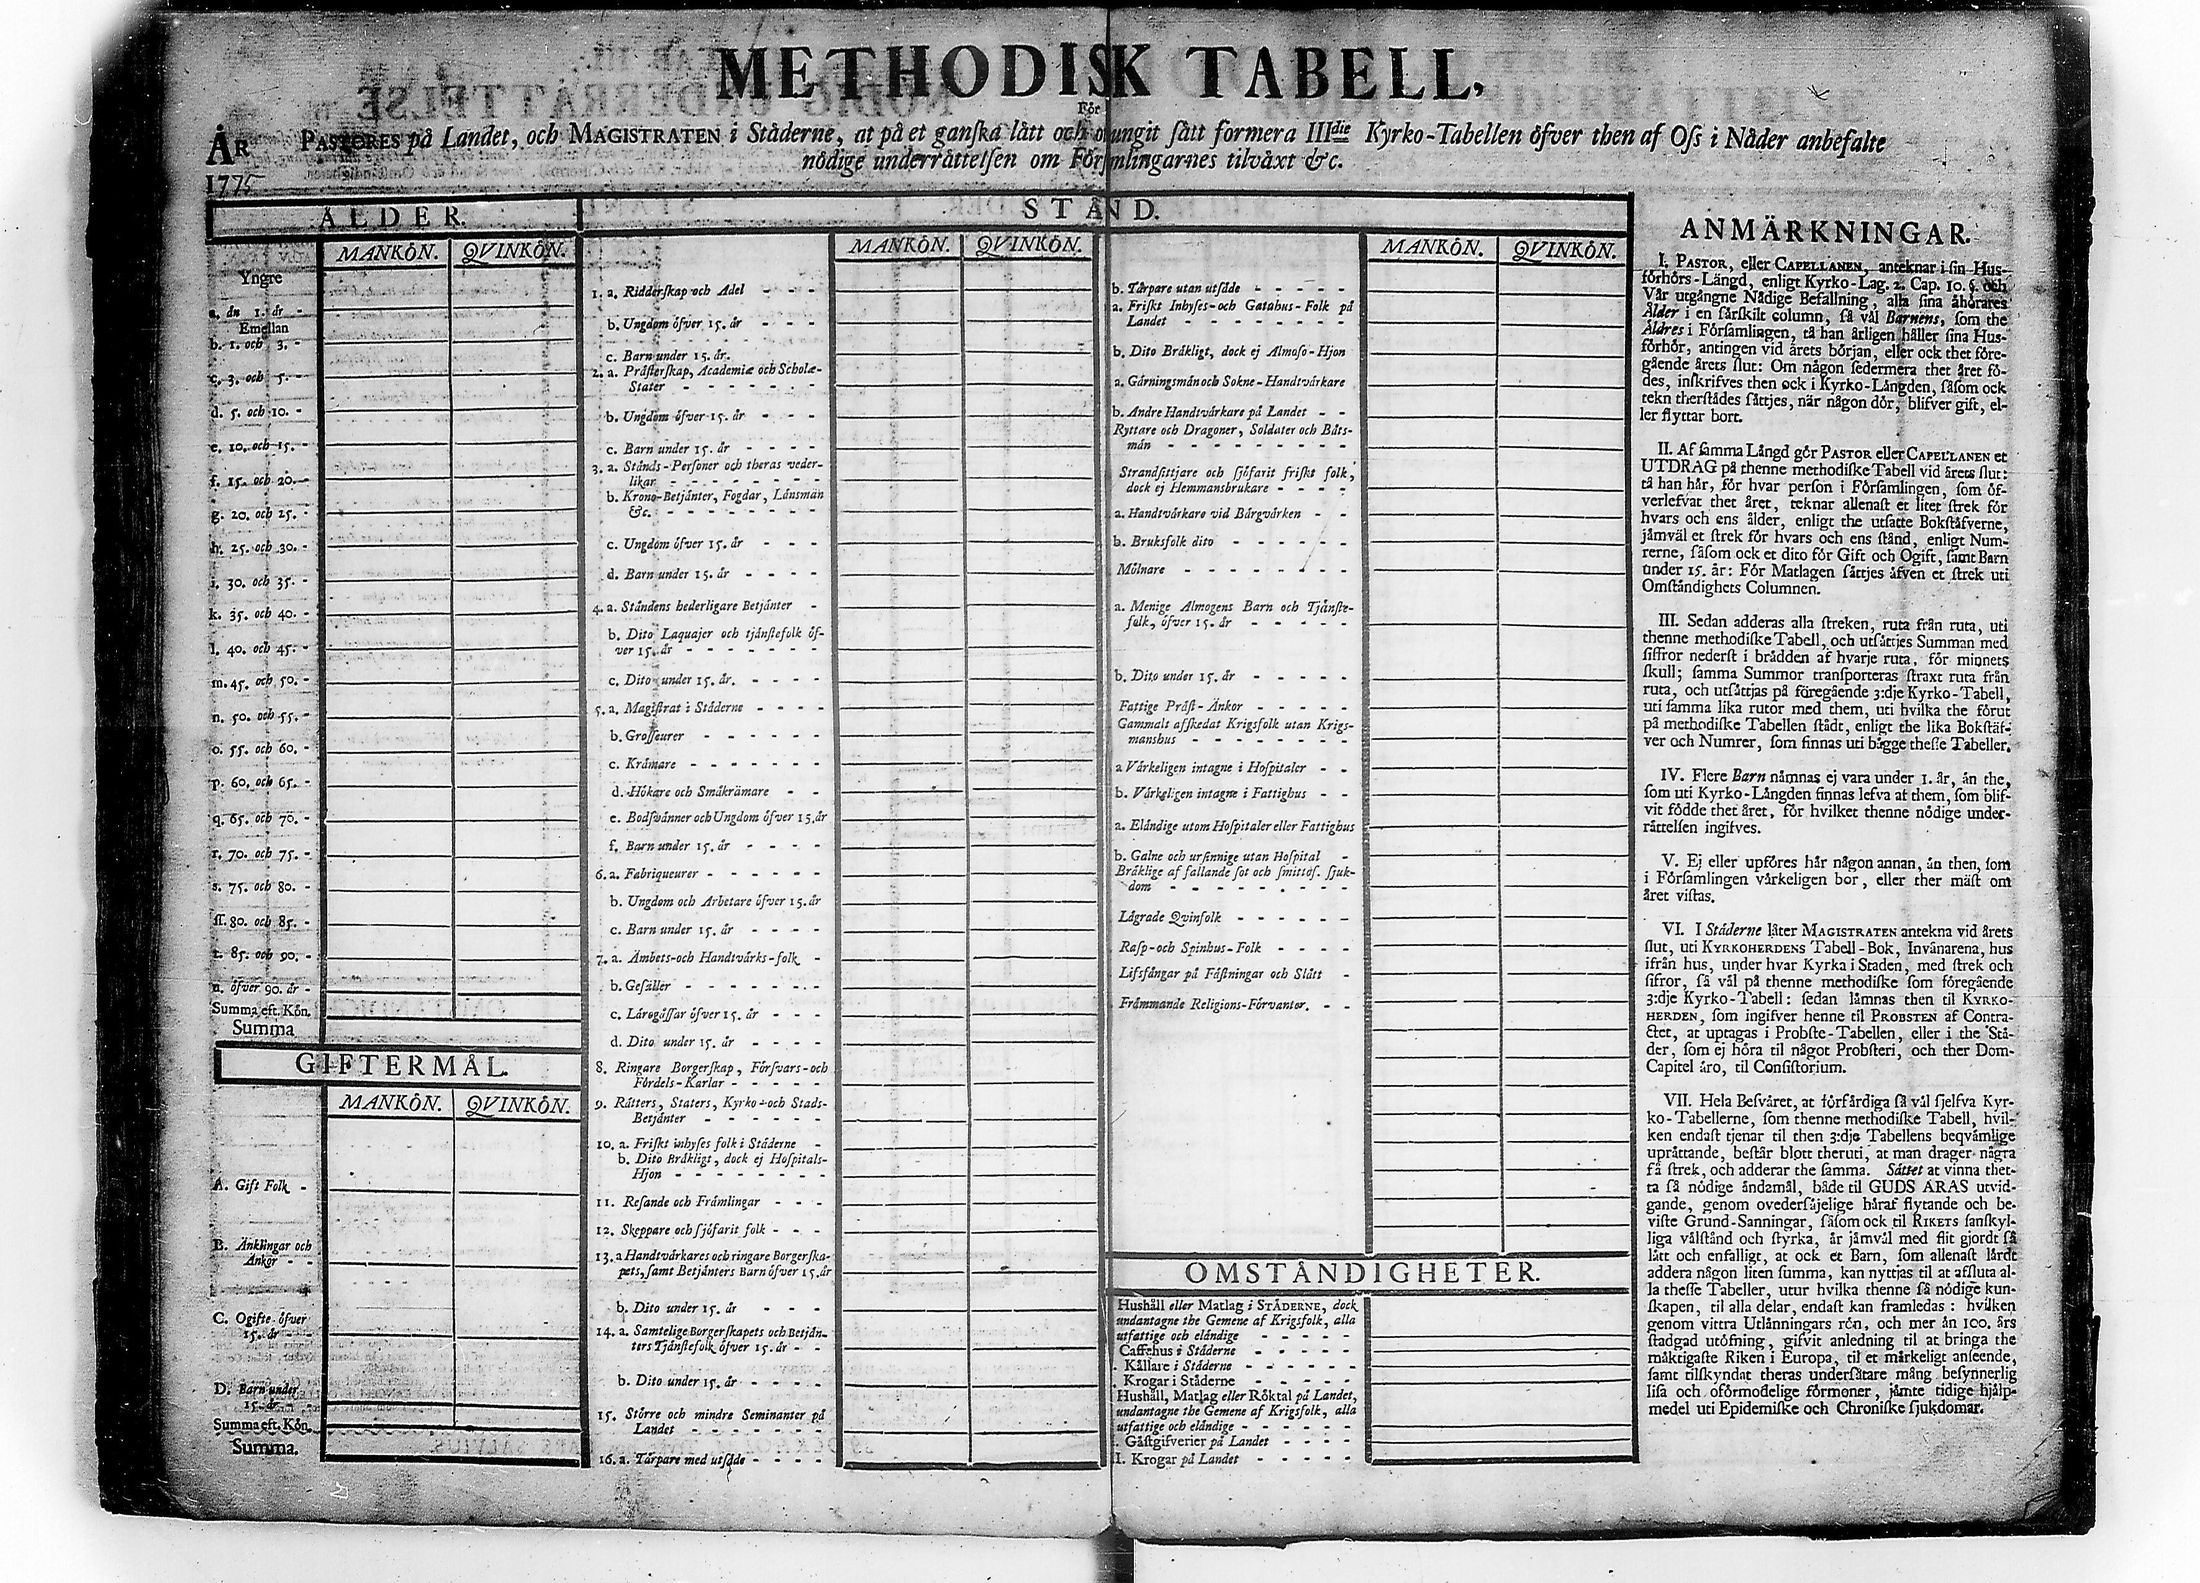 METHODISK TABELL,
För
PASTORES på Landet, och MAGISTRATEN i Städerne, at på et ganſka lått och otungit ſått formera IIIdie Kyrko-Tabellen öfver then af Oſs i Nåder anbefalte
nödige underråttelſen om Förſamlingarnes tilväxt &c.
ÅR
1775
ÅLDER.
MANKÖN. QVINKÖN.
Yngre
a. ån 1. år -
Emellan
b. 1. och 3. -
c. 3. och 5. -
d. 5. och 10. -
e. 10. och 15. -
f. 15. och 20. -
g. 20. och 25. -
h. 25. och 30. -
i. 30. och 35. -
k. 35. och 40. -
l. 40. och 45. -
m. 45. och 50. -
n. 50. och 55. -
o. 55. och 60. -
p. 60. och 65. -
q. 65. och 70. -
r. 70. och 75. -
s. 75. och 80. -
ſſ. 80. och 85. -
t. 85. och 90. -
u. öfver 90. år -
Summa eft. Kön.
Summa
GIFTERMÅL.
MANKÖN. QVINKÖN.
A. Gift Folk -
B. Änklingar och
Änkor - -
C. Ogifte öfver
15. år - -
D. Barn under
15. år - -
Summa eft. Kön.
Summa.
STÅND.
MANKÖN. QVINKÖN.
1. a. Ridderſkap och Adel - - -
b. Ungdom öfver 15. år - - -
c. Barn under 15. år.
2. a. Pråſterſkap, Academiæ och Scholæ-
Stater - - - - - -
b. Ungdom öfver 15. år - - -
c. Barn under 15. år - - - -
3. a. Stånds-Perſoner och theras veder-
likar - - - - - - -
b. Krono-Betjånter, Fogdar, Lånsmån
&c. - - - - - - -
c. Ungdom öfver 15. år - - -
d. Barn under 15. år - - - -
4. a. Ståndens hederligare Betjånter -
b. Dito Laquajer och tjånſtefolk öf-
ver 15. år - - - - - -
c. Dito under 15. år. - - - -
5. a. Magiſtrat i Ståderne - - - -
b. Groſſeurer - - - - - -
c. Kråmare - - - - - -
d. Hökare och Småkrämare - -
e. Bodſvänner och Ungdom öfver 15. år
f. Barn under 15. år - - - -
6. a. Fabriqueurer - - - - - -
b. Ungdom och Arbetare öfver 15. år
c. Barn under 15. år - - - -
7. a. Ämbets-och Handtvårks-folk -
b. Geſäller - - - - - -
c. Lårogåſſar öfver 15. år - - -
d. Dito under 15. år - - - -
8. Ringare Borgerſkap, Förſvars-och
Fördels-Karlar - - - - -
9. Råtters, Staters, Kyrko-och Stads-
Betjånter - - - - -
10. a. Friſkt inhyſes folk i Ståderne -
b. Dito Bråkligt, dock ej Hoſpitals-
Hjon - - - - - - -
11. Reſande och Fråmlingar - - -
12. Skeppare och ſjöfarit folk - - -
13. a Handtvårkares och ringare Borgerſka-
pets, ſamt Betjånters Barn öfver 15. år
b. Dito under 15. år - - -
14. a. Samtelige Borgerſkapets och Betjån-
ters Tjånſtefolk öfver 15. år - -
b. Dito under 15. år - - - -
15. Större och mindre Seminanter på
Landet - - - - - - -
16. a. Tårpare med utſåde - - - -
MANKÖN. QVINKÖN.
b. Tårpare utan utſåde - - - - -
a. Friſkt Inhyſes-och Gatahus-Folk på
Landet - - - - - - -
b. Dito Bråkligt, dock ej Almoſo-Hjon
a. Gårningsmån och Sokne-Handtvårkare
b. Andre Handtvårkare på Landet - -
Ryttare och Dragoner, Soldater och Båts-
mån - - - - - - - -
Strandſittjare och ſjöfarit friſkt folk,
dock ej Hemmansbrukare - - - -
a. Handtvårkare vid Bårgvårken - -
b. Bruksfolk dito - - - - - -
Mölnare - - - - - - - -
a. Menige Almogens Barn och Tjånſte-
folk, öfver 15. år - - - - -
b. Dito under 15. år - - - - -
Fattige Pråſt-Änkor - - - - -
Gammalt afſkedat Krigsfolk utan Krigs-
manshus - - - - - - - -
a Vårkeligen intagne i Hoſpitaler - -
b. Vårkeligen intagne i Fattighus - -
a. Elåndige utom Hoſpitaler eller Fattighus
b. Galne och urſinnige utan Hoſpital -
Bråklige af fallande ſot och ſmittoſ. ſjuk-
dom - - - - - - - -
Lågrade Qvinfolk - - - - - -
Raſp-och Spinhus-Folk - - - -
Lifsfångar på Fåſtningar och Slått -
Fråmmande Religions-Förvanter. - -
OMSTÅNDIGHETER.
Hushåll eller Matlag i STÅDERNE, dock
undantagne the Gemene af Krigsfolk, alla
utfattige och elåndige - - - - -
Caffehus i Ståderne - - - - -
. Kållare i Ståderne - - - - - -
. Krogar i Ståderne - - - - -
Hushåll, Matlag eller Röktal på Landet,
undantagne the Gemene af Krigsfolk, alla
utfattige och elåndige - - - - -
. Gåſtgifverier på Landet - - - -
I. Krogar på Landet - - - - -
ANMÄRKNINGAR.
I. PASTOR, eller CAPELLANEN, anteknar i ſin Hus-
förhörs-Längd, enligt Kyrko-Lag. 2. Cap. 10. §. och
Vår utgångne Nådige Befallning, alla ſina åhörares
Ålder i en ſårſkilt column, ſå vål Barnens, ſom the
Äldres i Förſamlingen, tå han årligen håller ſina Hus-
förhör, antingen vid årets början, eller ock thet före-
gående årets ſlut: Om någon ſedermera thet året fö-
des, inſkrifves then ock i Kyrko-Långden, ſåſom ock
tekn therſtådes ſåttjes, när någon dör, blifver gift, el-
ler flyttar bort.
II. Af ſamma Långd gör PASTOR eller CAPELLANEN et
UTDRAG på thenne methodiſke Tabell vid årets ſlut:
tå han hår, för hvar perſon i Förſamlingen, ſom öf-
verlefvat thet året, teknar allenaſt et litet ſtrek för
hvars och ens ålder, enligt the utſatte Bokſtåfverne,
jåmvål et ſtrek för hvars och ens ſtånd, enligt Num-
rerne, ſåſom ock et dito för Gift och Ogift, ſamt Barn
under 15. år: För Matlagen ſåttjes åfven et ſtrek uti
Omſtåndighets Columnen.
III. Sedan adderas alla ſtreken, ruta från ruta, uti
thenne methodiſke Tabell, och utſåttjes Summan med
ſiffror nederſt i brådden af hvarje ruta, för minnets
ſkull; ſamma Summor tranſporteras ſtraxt ruta från
ruta, och utſåttjas på föregående 3:dje Kyrko-Tabell,
uti ſamma lika rutor med them, uti hvilka the förut
på methodiſke Tabellen ſtådt, enligt the lika Bokſtåf-
ver och Numrer, ſom finnas uti bågge theſſe Tabeller.
IV. Flere Barn nåmnas ej vara under 1. år, ån the,
ſom uti Kyrko-Långden finnas lefva af them, ſom blif-
vit födde thet året, för hvilket thenne nödige under-
råttelſen ingifves.
V. Ej eller upföres hår någon annan, ån then, ſom
i Förſamlingen vårkeligen bor, eller ther måſt om
året viſtas.
VI. I Ståderne låter MAGISTRATEN antekna vid årets
ſlut, uti KYRKOHERDENS Tabell-Bok, Invånarena, hus
ifrån hus, under hvar Kyrka i Staden, med ſtrek och
ſifror, ſå vål på thenne methodiſke ſom föregående
3:dje Kyrko-Tabell: ſedan låmnas then til KYRKO-
HERDEN, ſom ingifver henne til PROBSTEN af Contra-
ctet, at uptagas i Probſte-Tabellen, eller i the Stå-
der, ſom ej höra til något Probſteri, och ther Dom-
Capitel åro, til Conſiſtorium.
VII. Hela Beſvåret, at förfårdiga ſå vål ſjelfva Kyr-
ko-Tabellerne, ſom thenne methodiſke Tabell, hvil-
ken endaſt tjenar til then 3:dje Tabellens beqvåmlige
upråttande, beſtår blott theruti, at man drager några
få ſtrek, och adderar the ſamma. Såttet at vinna thet-
ta ſå nödige åndamål, både til GUDS ÅRAS utvid-
gande, genom overderſåjelige håraf flytande och be-
viſte Grund-Sanningar, ſåſom ock til RIKETS ſanſkyl-
liga vålſtånd och ſtyrka, år jåmvål med flit gjordt ſå
lått och enfalligt, at ock et Barn, ſom allenaſt lårdt
addera någon liten ſumma, kan nyttjas til at afſluta al-
la theſſe Tabeller, utur hvilka thenne ſå nödige kun-
ſkapen, til alla delar, endaſt kan framledas: hvilken
genom vittra Utlånningars rön, och mer ån 100. års
ſtadgad utöfning, gifvit anledning til at bringa the
måktigaſte Riken i Europa, til et mårkeligt anſeende,
ſamt tilſkyndat theras underſåtare mång beſynnerlig
liſa och oförmodelige förmoner, jåmte tidige hjålp-
medel uti Epidemiſke och Chroniſke ſjukdomar.